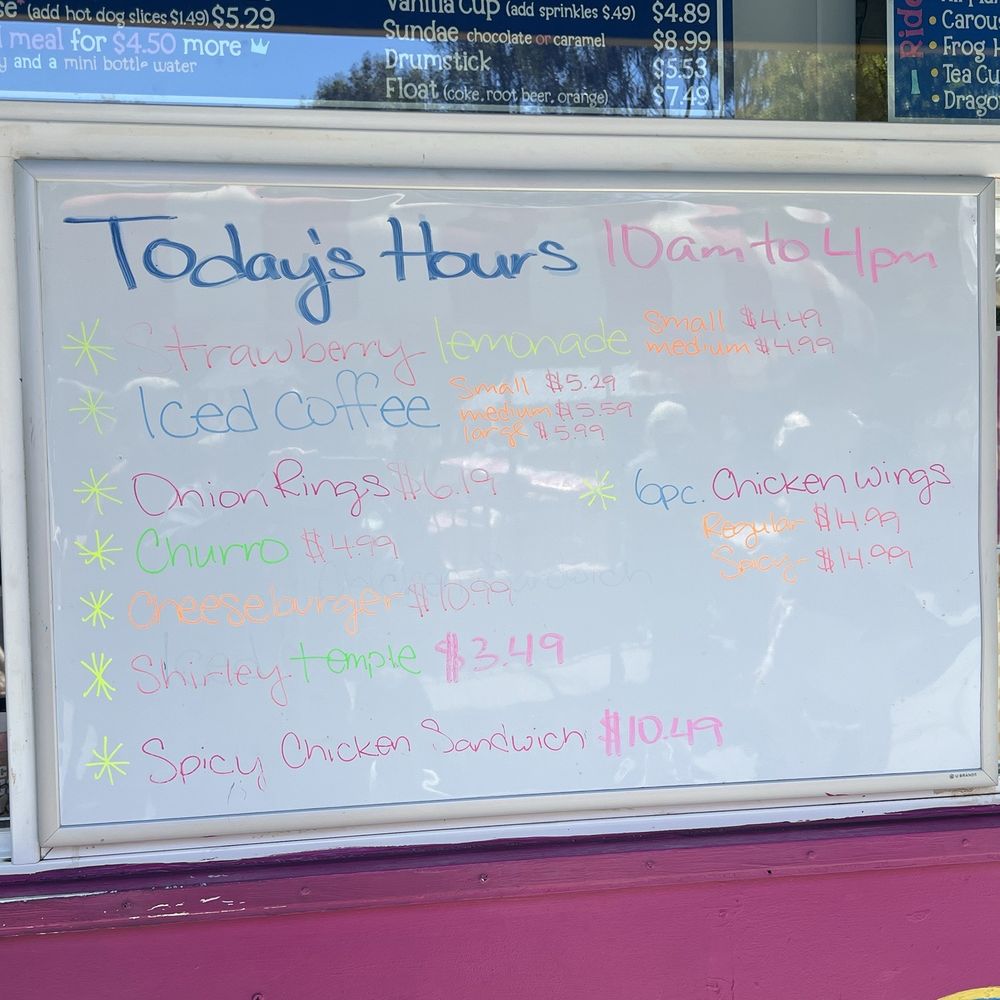 (add hot dog slices $1.49) $5.29
meal for $4.50 more
and a mini bottle water
Vanilla Cup (add sprinkles $.49) $4.89
Sundae chocolate or caramel $8.99
Drumstick $5.53
Float (coke, root beer, orange) $7.49
Ride
• Carou
• Frog
• Tea Cu
• Drago
Today's Hours 10am to 4pm
Strawberry lemonade Small $4.49
medium $4.99
Iced Coffee Small $5.29
medium $5.59
large $5.99
Onion Rings $6.19
6pc. Chicken wings
Regular $14.99
Spicy $14.99
Churro $4.99
Cheeseburger $10.99
Shirley temple $3.49
Spicy Chicken Sandwich $10.49
U BRANDS